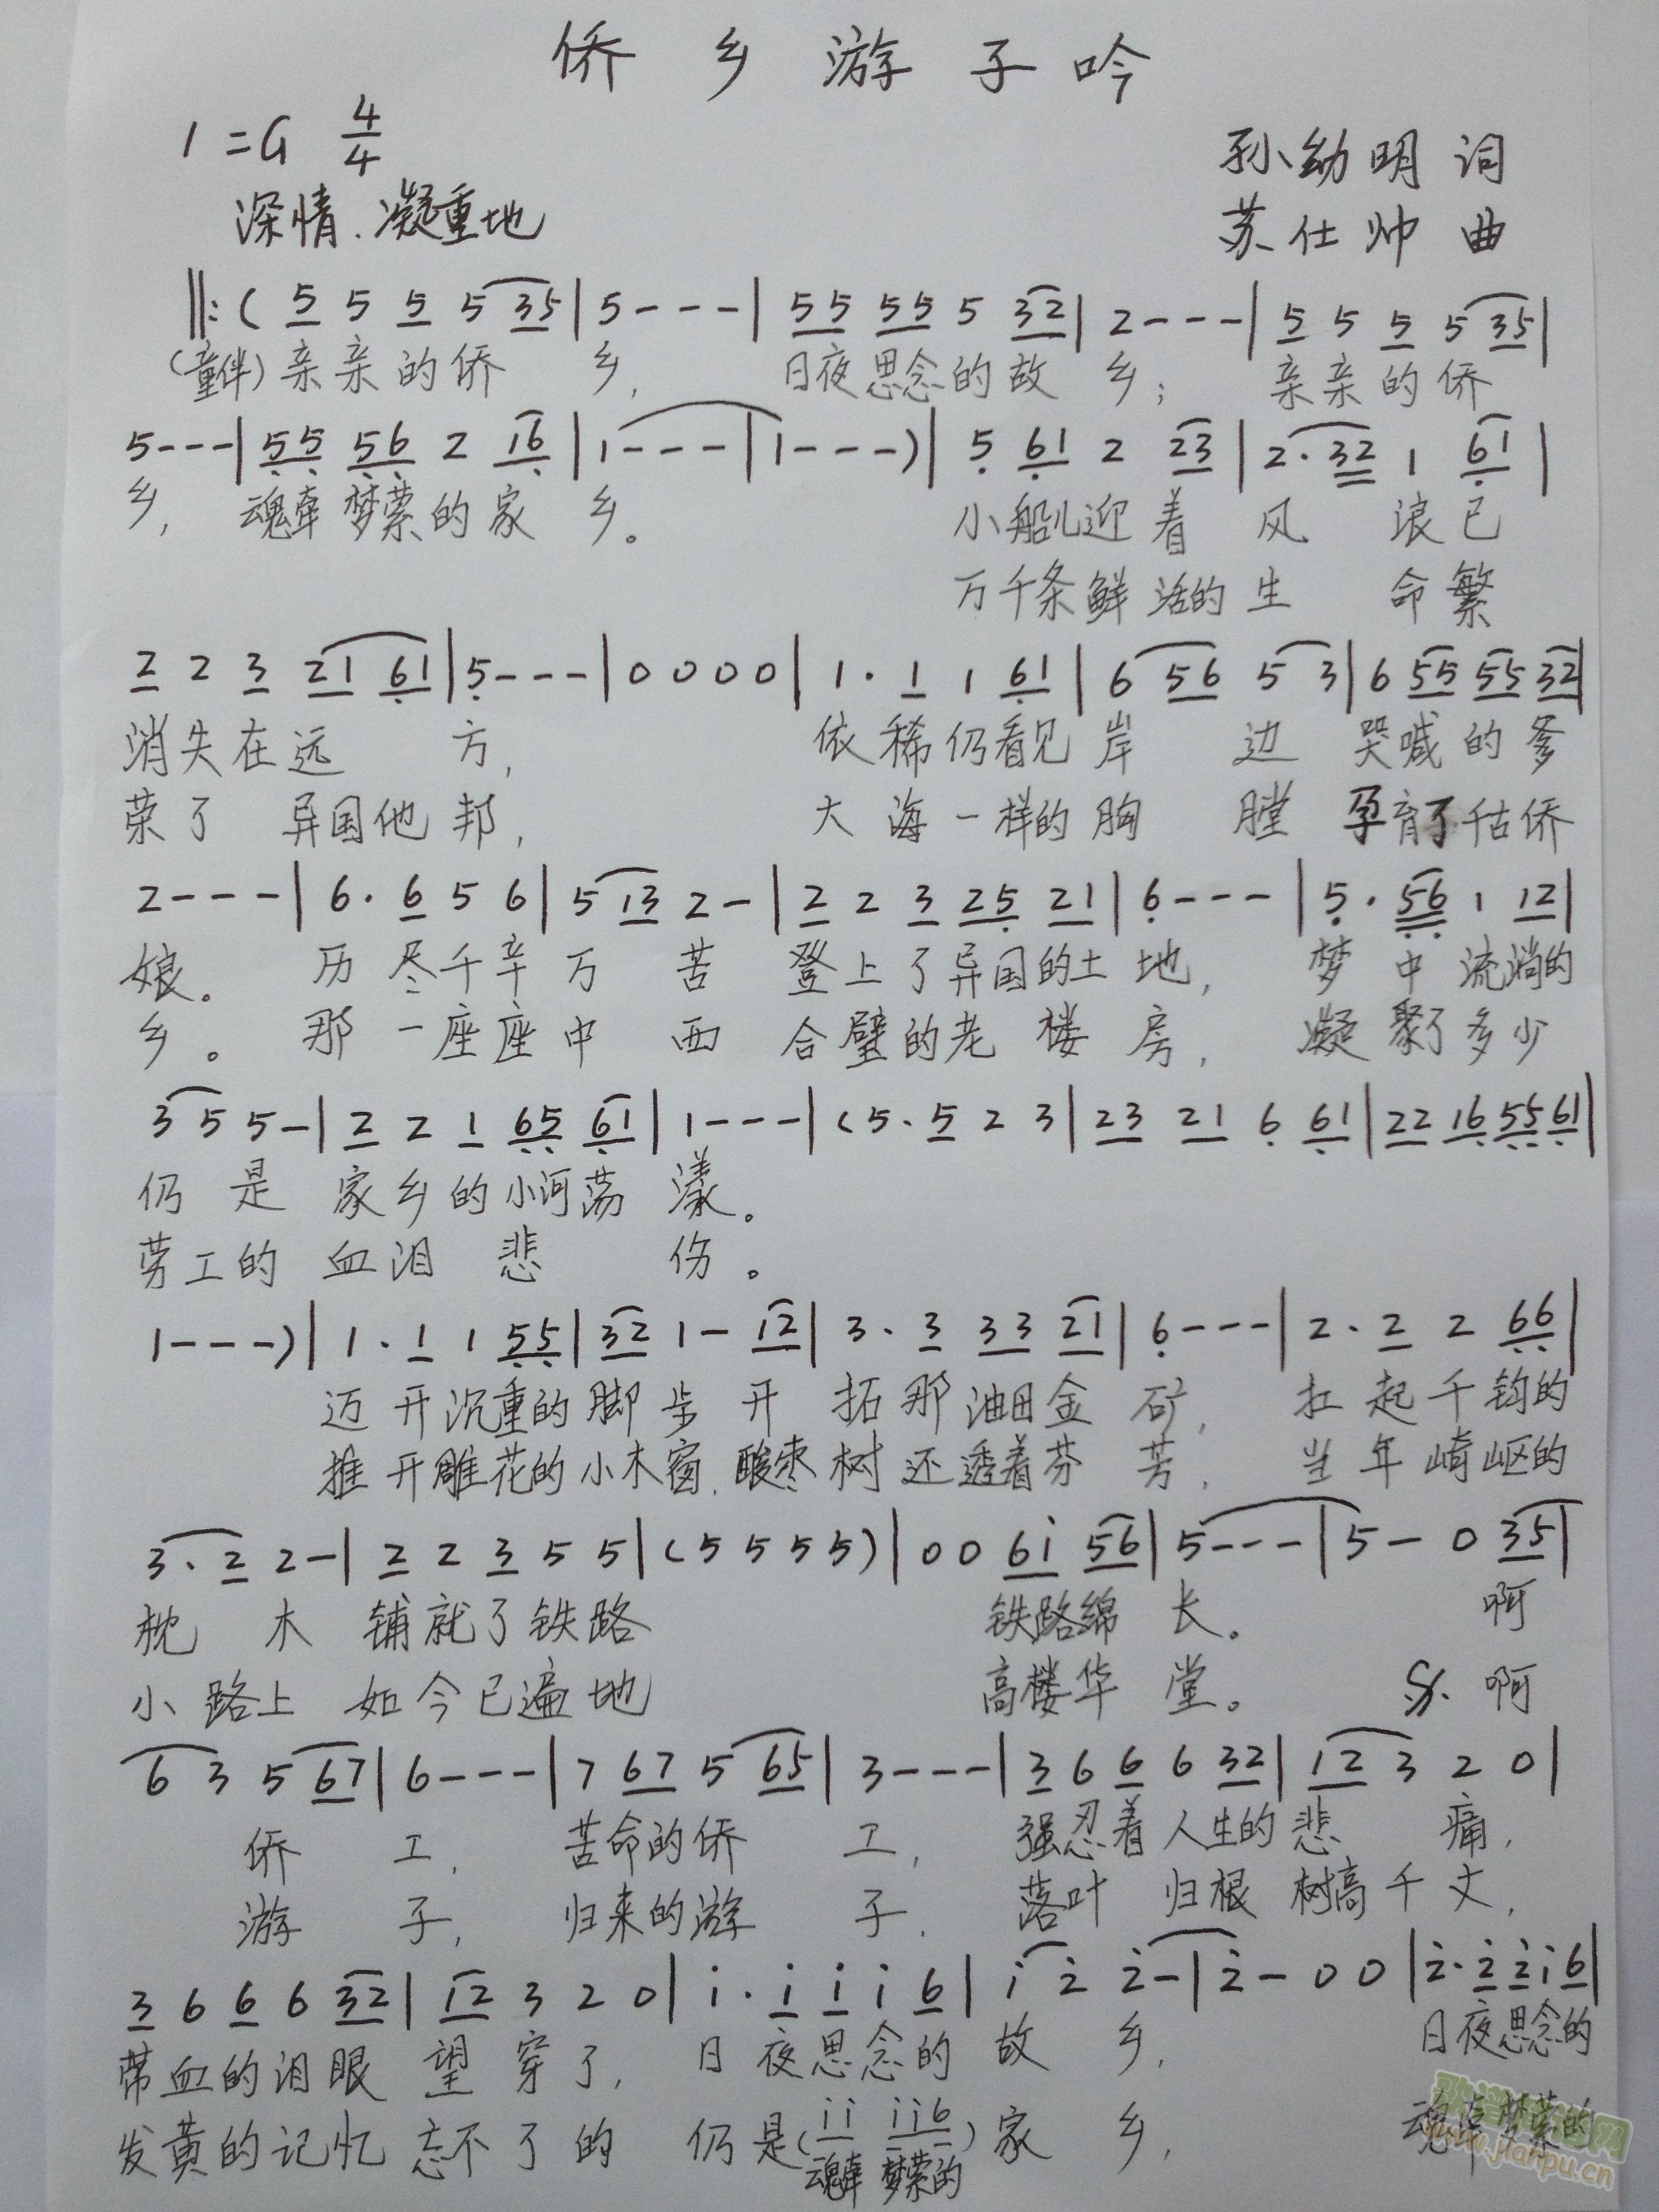 侨乡游子吟
1=G 4/4
孙幼明 词
深情.凝重地
苏仕帅 曲
‖:( 5 5 5 5 35 | 5 - - - | 55 55 5 32 | 2 - - - | 5 5 5 5 35 |
(童伴)亲亲的侨 乡, 日夜思念的故 乡; 亲亲的侨
5 - - - | 55 56 2 16 | 1 - - - | 1 - - - ) | 5 61 2 23 | 2· 32 1 61 |
乡, 魂牵梦萦的家 乡。 小船儿迎着风 浪已
万千条鲜活的生 命繁
2 2 3 21 61 | 5 - - - | 0 0 0 0 | 1· 1 1 61 | 6 56 5 3 | 6 55 55 32 |
消失在远 方, 依稀仍看见岸 边 哭喊的爹
荣了 异国他邦, 大海一样的胸 膛 孕育了千古侨
2 - - - | 6· 6 5 6 | 5 13 2 - | 2 2 3 25 21 | 6 - - - | 5· 56 1 12 |
娘。 历尽千辛万 苦 登上了异国的土地, 梦中流淌的
乡。 那一座座中 西 合璧的老楼房, 凝聚了多少
3 5 5 - | 2 2 1 65 61 | 1 - - - | (5· 5 2 3 | 23 21 6 61 | 22 16 55 61 |
仍是 家乡的小河荡漾。
劳工的 血泪悲 伤。
1 - - - ) | 1· 1 1 55 | 32 1 - 12 | 3· 3 33 21 | 6 - - - | 2· 2 2 66 |
迈开沉重的脚步开 拓那油田金矿, 扛起千钧的
推开雕花的小木窗,酸枣树还透着芬芳, 当年崎岖的
3· 2 2 - | 2 2 3 5 5 | (5 5 5 5) | 0 0 61̇ 56 | 5 - - - | 5 - 0 35 |
枕 木 铺就了铁路 铁路绵长。 啊
小路上 如今已遍地 高楼华堂。 𝄋 啊
6 3 5 67 | 6 - - - | 7 67 5 65 | 3 - - - | 3 6 6 6 32 | 12 3 2 0 |
侨 工, 苦命的侨 工, 强忍着人生的悲 痛,
游 子, 归来的游 子, 落叶 归根 树高千丈,
3 6 6 6 32 | 12 3 2 0 | 1̇· 1̇ 1̇ 1̇ 6 | 1̇ 2̇ 2̇ - | 2̇ - 0 0 | 2̇· 2̇ 2̇1̇ 6 |
带血的泪眼 望穿了, 日夜思念的 故乡, 日夜思念的
发黄的记忆 忘不了的 仍是(1̇1̇ 1̇1̇6)家乡, 魂牵梦萦的
魂牵 梦萦的
歌谱简谱网
www.jianpu.cn